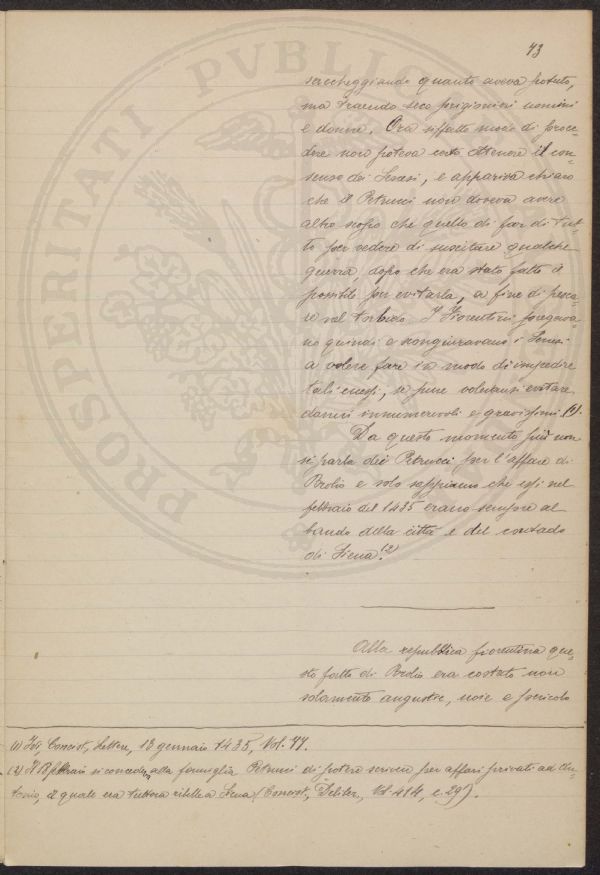 73
saccheggiando quanto aveva potuto,
ma traendo seco prigionieri uomini
e donne. Ora siffatto modo di proce-
dere non poteva certo ottenere il con-
senso dei Senesi, e appariva chiaro
che il Petrucci non doveva avere
altro scopo che quello di far di tut-
to per vedere di suscitare qualche
guerra, dopo che era stato fatto il
possibile per evitarla, a fine di pesca-
re nel torbido. I Fiorentini pregava-
no quindi e scongiuravano i Senesi
a volere fare in modo di impedire
tali eccessi, se pure volevansi evitare
danni innumerevoli e gravissimi. (1).
Da questo momento più non
si parla dei Petrucci per l'affare di
Brolio e solo sappiamo che egli nel
febbraio del 1435 erano sempre al
bando della città e del contado
di Siena. (2)
Alla repubblica fiorentina que-
sto fatto di Brolio era costato non
solamente angustie, noie e pericolo
(1) Ivi, Concist., Lettere, 13 gennaio 1435, Vol. 77.
(2) Il febbraio si concede alla famiglia Petrucci di potere scrivere per affari privati ad An-
tonio, il quale era tuttora ribelle a Siena (Concist., Deliber., Vol 414, c. 29).
PROSPERITATI PVBLICAE